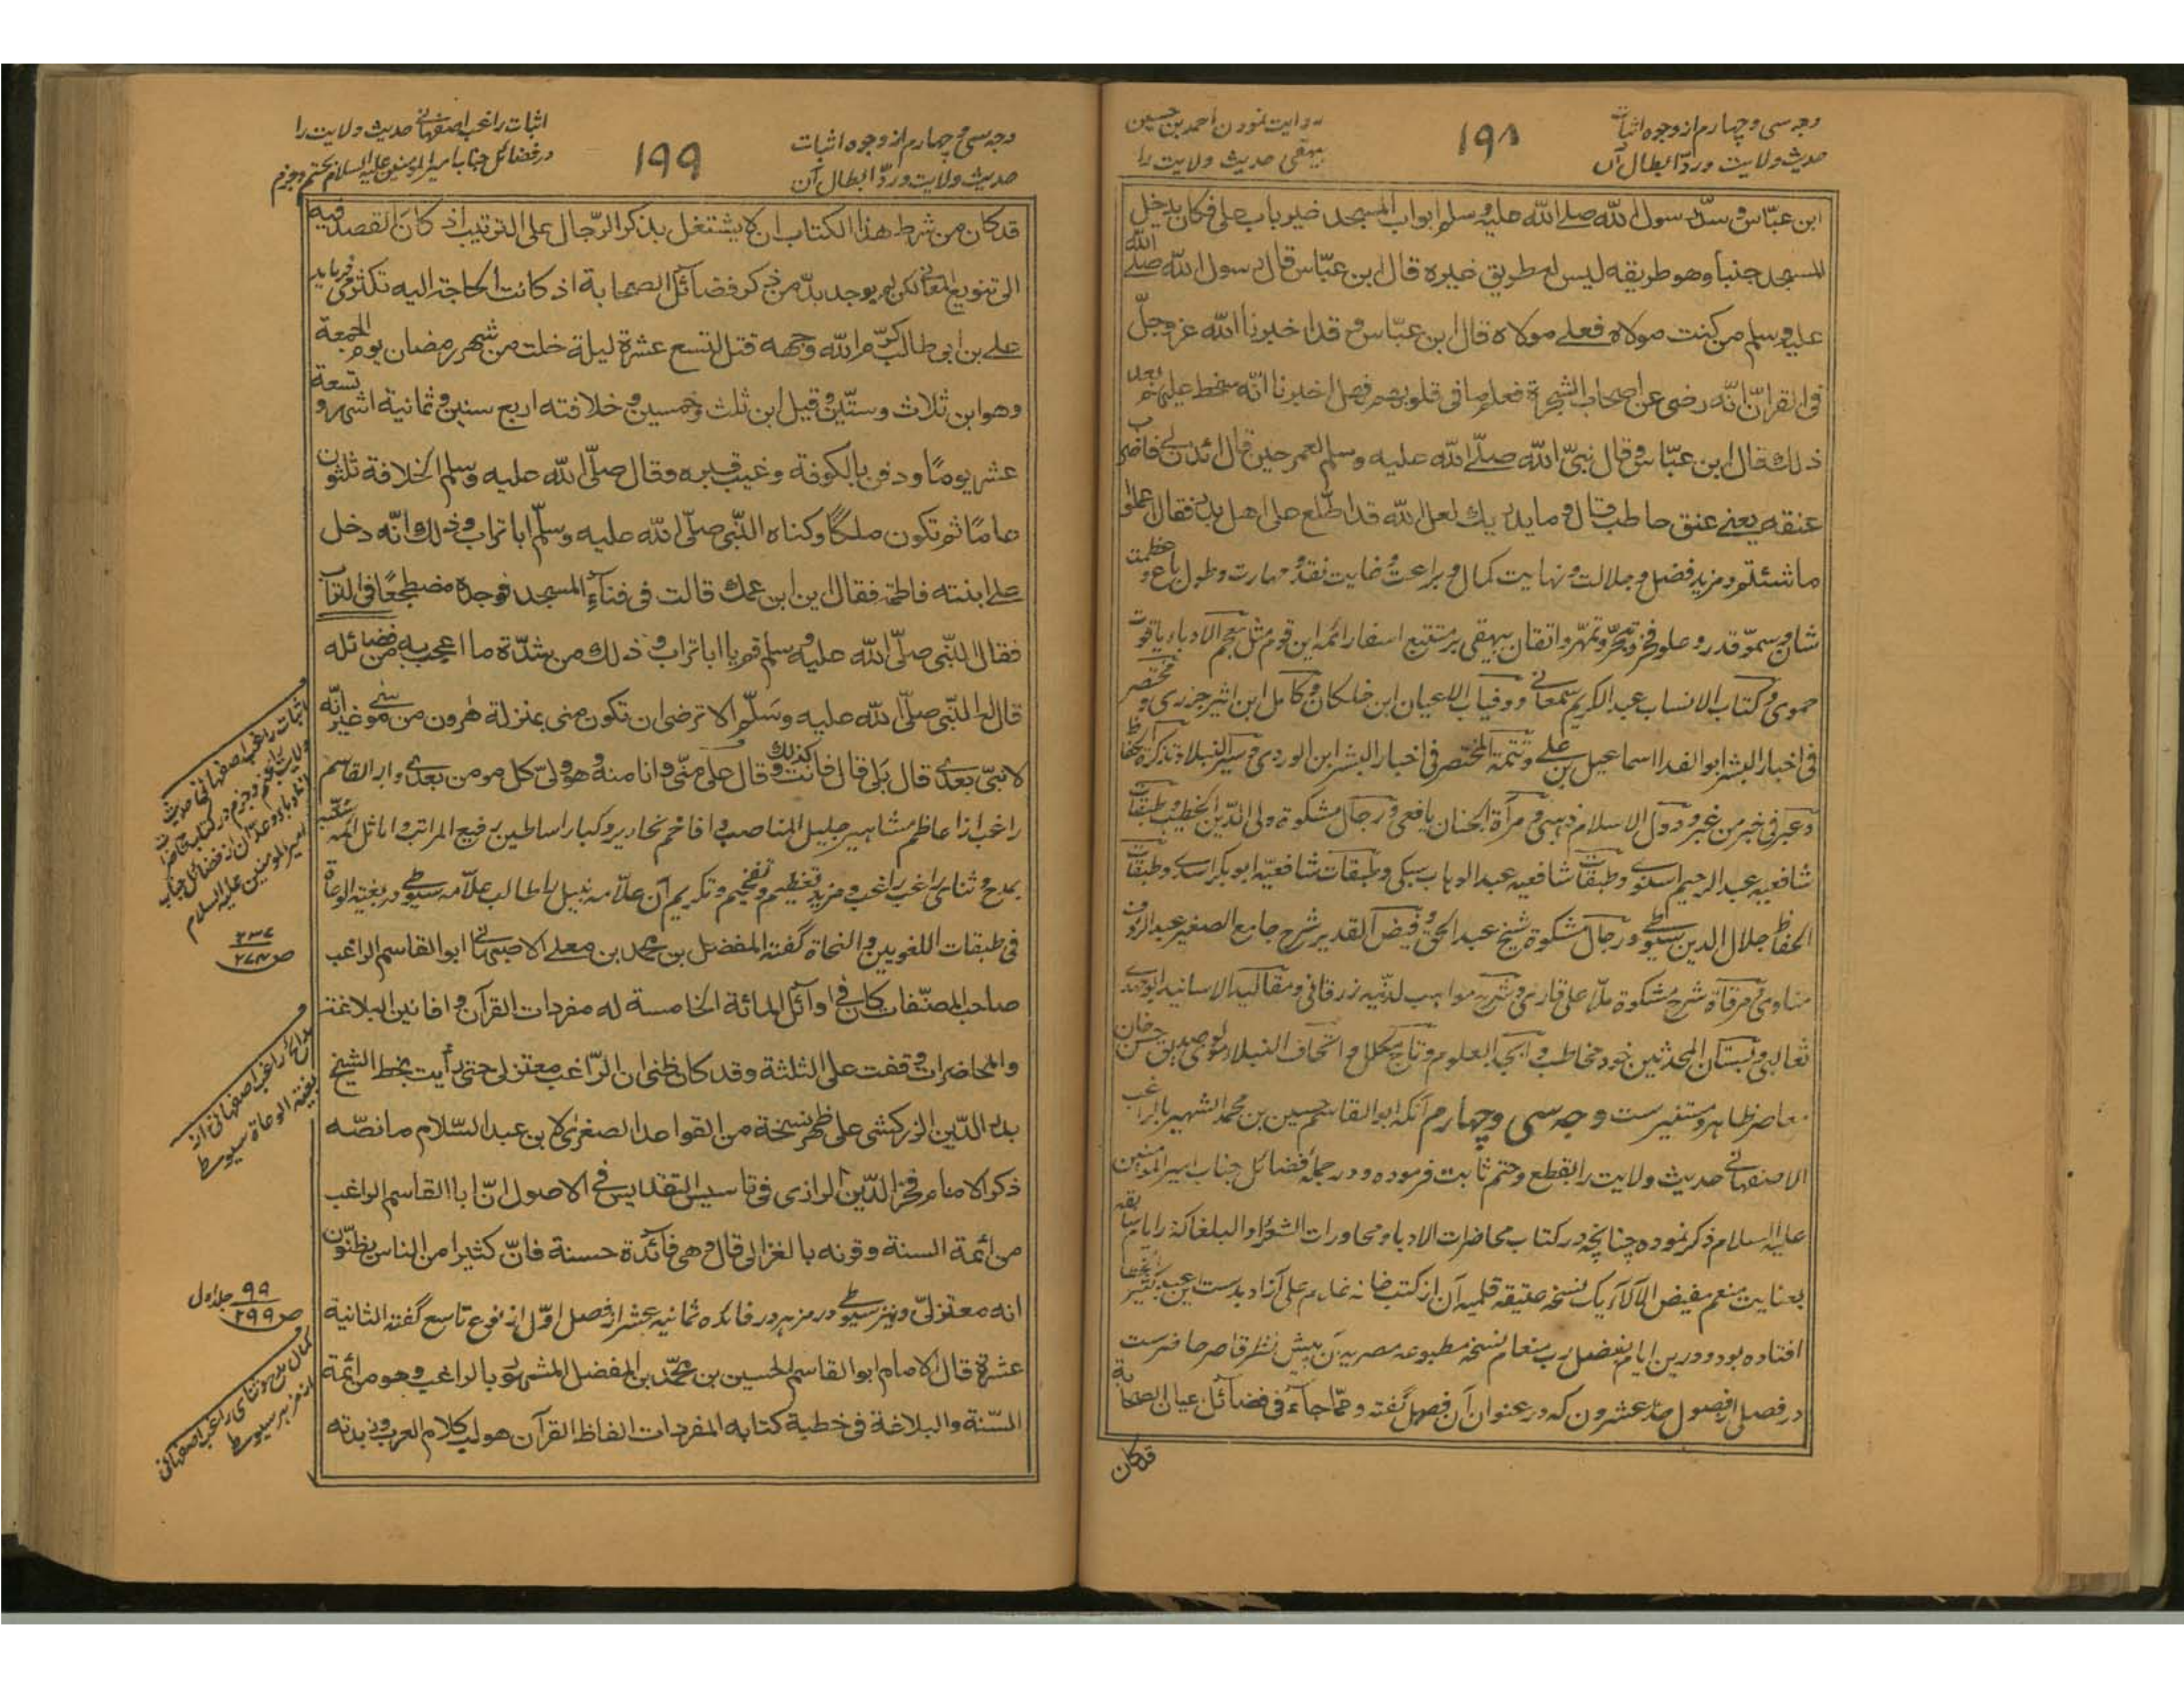 وجه سی و چهارم از وجوه اثبات
حدیث ولایت و ردّ ابطال آن
۱۹۸
روایت نمودن احمد بن حسین
بیهقی حدیث ولایت را
ابن عبّاس و سدّ رسول الله صلے الله علیه وسلم ابواب المسجد غیر باب علی فکان یدخل
المسجد جنبا وهو طریقه لیس له طریق غیره قال ابن عبّاس قال رسول الله صلے الله
علیه وسلم من کنت مولاه فعلے مولاه قال ابن عبّاس و قد اخبرنا الله عز وجلّ
فی القرآن انّه رضی عن اصحاب الشجرة فعلم ما فی قلوبهم فهل اخبرنا انّه سخط علیهم بعد
ذلک قال ابن عبّاس و قال نبیّ الله صلّے الله علیه وسلم لعمر حین قال ائذن لے فاضرب
عنقه یعنے عنق حاطب قال و ما یدریک لعل الله قد اطّلع علی اهل بدر فقال اعملوا
ما شئتم و مزید فضل و جلالت و نهایت کمال و براعت و غایت نقد و مهارت و طول باع و عظمت
شان و سموّ قدر و علو فخر و تبحّر و تمهّر و اتقان بیهقی بر متتبع اسفار ائمه این قوم مثل معجم الادباء یاقوت
حموی و کتاب الانساب عبد الکریم سمعانے و وفیات الاعیان ابن خلکان و کامل ابن اثیر جزری و مختصر
فی اخبار البشر ابو الفدا اسماعیل بن علے و تتمة المختصر فی اخبار البشر ابن الوردی و سیر النبلا و تذکرة الحفاظ
و عبر فی خبر من غبر و دول الاسلام ذهبی و مرآة الجنان یافعی و رجال مشکوة ولی الدّین الخطیب و طبقات
شافعیه عبد الرحیم اسنوے و طبقات شافعیه عبد الوهاب سبکی و طبقات شافعیّه ابو بکر اسدے و طبقات
الحفاظ جلال الدین سیوطے و رجال مشکوة شیخ عبد الحق و فیض القدیر شرح جامع الصغیر عبد الرؤف
مناوی و مرقاة شرح مشکوة ملّا علی قاری و شرح مواهب لدنّیه زرقانی و مقالید الاسانید ابو مهدے
ثعالبی و بستان المحدثین خود مخاطب و ابجد العلوم و تاج مکلل و اتحاف النبلاء مولوی صدیق حسن خان
معاصر ظاهر و مستنیرست وجه سی و چهارم آنکه ابو القاسم حسین بن محمد الشهیر بالراغب
الاصفهانے حدیث ولایت را بقطع و حتم ثابت فرموده و در جملۀ فضائل جناب امیر المؤمنین
علیه السلام ذکر نموده چنانچه در کتاب محاضرات الادباء و محاورات الشعراء و البلغا که در ایام سابقه
بعنایت منعم مفیض الآلاء یک نسخه عتیقه قلمیه آن از کتب خانه غلام علی آزاد بدست این عبید کثیر الخطا
افتاده بود و درین ایام بفضل رب منعام نسخه مطبوعه مصریه آن پیش نظر قاصر حاضرست
در فصلی از فصول حد عشرون که در عنوان آن فصل گفته و ممّا جاء فی فضائل اعیان الصحابة
قد کان
وجه سی و چهارم از وجوه اثبات
حدیث ولایت و ردّ ابطال آن
۱۹۹
اثبات راغب اصفهانے حدیث ولایت را
در فضائل جناب امیر المومنین علیه السلام بحتم و جزم
قد کان من شرط هذا الکتاب ان لا یشتغل بذکر الرّجال علی الترتیب اذ کان القصد فیه
الی تنویع المعانی لکن لم یوجد بدّ من ذکر فضائل الصحابة اذ کانت الحاجة الیه تکثر می فرماید
علے بن ابی طالب کرّم الله وجهه قتل لتسع عشرة لیلة خلت من شهر رمضان یوم الجمعة
وهو ابن ثلاث وستّین وقیل ابن ثلث وخمسین و خلافته اربع سنین و ثمانیة اشهر و تسعة
عشر یومًا و دفن بالکوفة و غیب قبره و قال صلّی الله علیه وسلم الخلافة ثلثون
عامًا ثم تکون ملکًا و کناه النّبی صلّی الله علیه وسلّم ابا تراب و ذلک انّه دخل
علے ابنته فاطمة فقال این ابن عمک قالت فی فناء المسجد فوجده مضطجعًا فی التراب
فقال النّبی صلّی الله علیه وسلم قم یا ابا تراب و ذلک من شدّة ما اعجب به من فضائله
قال له النّبی صلّی الله علیه وسلّم الا ترضی ان تکون منی بمنزلة هرون من موسے غیر انّه
لا نبیّ بعدی قال بَلی قال فانت کذلک و قال علی منّی وانا منه و هو ولیّ کل مومن بعدی و ابو القاسم
راغب از اعاظم مشاهیر جلیل المناصب و افاخم نحاریر و کبار اساطین رفیع المراتب و اماثل ائمه سنّیه
بمدح و ثنای راغب راغب و مزید تعظیم و تفخیم و تکریم آن علّامه نبیل را طالب علّامه سیوطے در بغیة الوعاة
فی طبقات اللغویین و النحاة گفته المفضل بن محمد بن معلے الاصبهانے ابو القاسم الراغب
صاحب المصنّفات کان فی اوائل المائة الخامسة له مفردات القرآن و افانین البلاغة
و المحاضرات وقفت علی الثلثة وقد کان ظنی ان الرّاغب معتزلی حتی رأیت بخط الشیخ
بدر الدّین الزرکشی علی ظهر نسخة من القواعد الصغری لابن عبد السّلام ما نصّه
ذکر الامام فخر الدّین الرازی فی تاسیس التقدیس فی الاصول انّ ابا القاسم الراغب
من ائمة السنة وقرنه بالغزالی قال و هی فائدة حسنة فانّ کثیرا من الناس یظنّون
انه معتزلیّ و نیز سیوطے در مزهر در فائده ثمانیه عشر از فصل اوّل از نوع تاسع گفته الثانیة
عشرة قال الامام ابو القاسم الحسین بن محمّد بن المفضل المشهور بالراغب و هو من ائمة
السّنة و البلاغة فی خطبة کتابه المفردات الفاظ القرآن هو لب کلام العرب و زبدته
اثبات راغب اصفهانی حدیث
ولایت را بحتم و جزم در کتاب محاضرات
امیر المومنین علیه السلام
ص ۲۳۷/۲۷۴
مدائح راغب اصفهانی از
بغیة الوعاة سیوطے
ص ۹۹/۲۹۹ جلد اول
کمال مدح و ثنای راغب اصفهانی
از مزهر سیوطے